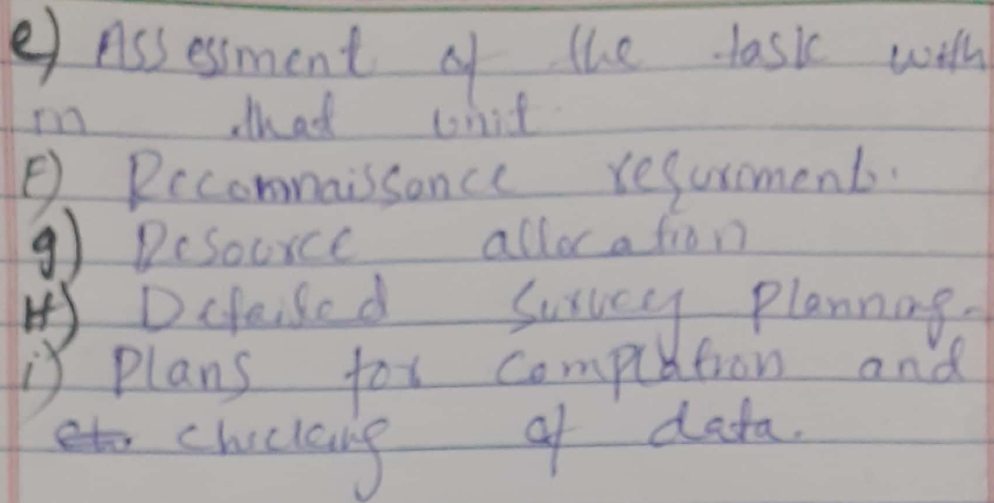 e) Assessment of the task with
in that unit.
F) Reccomnaissance requrements.
g) Resource allocation
H) Detailed Survey Planning.
i) Plans for Complation and
checking of data.